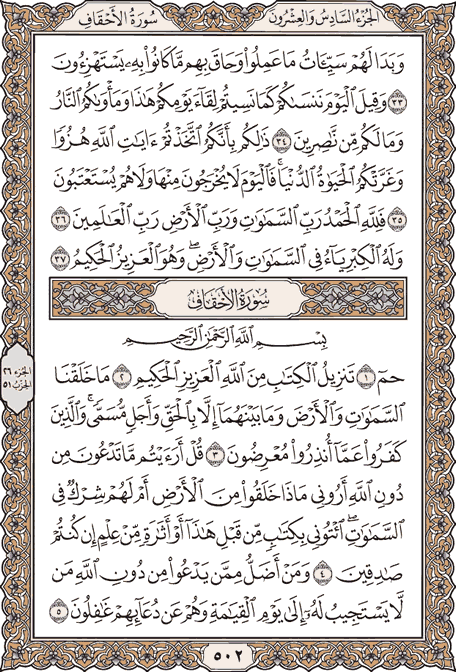 الجزء السادس والعشرون
سورة الأحقاف
وَبَدَا لَهُمْ سَيِّئَاتُ مَا عَمِلُوا۟ وَحَاقَ بِهِم مَّا كَانُوا۟ بِهِۦ يَسْتَهْزِءُونَ
٣٣ وَقِيلَ ٱلْيَوْمَ نَنسَىٰكُمْ كَمَا نَسِيتُمْ لِقَآءَ يَوْمِكُمْ هَٰذَا وَمَأْوَىٰكُمُ ٱلنَّارُ
وَمَا لَكُم مِّن نَّٰصِرِينَ ٣٤ ذَٰلِكُم بِأَنَّكُمُ ٱتَّخَذْتُمْ ءَايَٰتِ ٱللَّهِ هُزُوًا
وَغَرَّتْكُمُ ٱلْحَيَوٰةُ ٱلدُّنْيَا ۚ فَٱلْيَوْمَ لَا يُخْرَجُونَ مِنْهَا وَلَا هُمْ يُسْتَعْتَبُونَ
٣٥ فَلِلَّهِ ٱلْحَمْدُ رَبِّ ٱلسَّمَٰوَٰتِ وَرَبِّ ٱلْأَرْضِ رَبِّ ٱلْعَٰلَمِينَ ٣٦
وَلَهُ ٱلْكِبْرِيَآءُ فِى ٱلسَّمَٰوَٰتِ وَٱلْأَرْضِ ۖ وَهُوَ ٱلْعَزِيزُ ٱلْحَكِيمُ ٣٧
سورة الأحقاف
بِسْمِ ٱللَّهِ ٱلرَّحْمَٰنِ ٱلرَّحِيمِ
حمٓ ١ تَنزِيلُ ٱلْكِتَٰبِ مِنَ ٱللَّهِ ٱلْعَزِيزِ ٱلْحَكِيمِ ٢ مَا خَلَقْنَا
ٱلسَّمَٰوَٰتِ وَٱلْأَرْضَ وَمَا بَيْنَهُمَآ إِلَّا بِٱلْحَقِّ وَأَجَلٍ مُّسَمًّى ۚ وَٱلَّذِينَ
كَفَرُوا۟ عَمَّآ أُنذِرُوا۟ مُعْرِضُونَ ٣ قُلْ أَرَءَيْتُم مَّا تَدْعُونَ مِن
دُونِ ٱللَّهِ أَرُونِى مَاذَا خَلَقُوا۟ مِنَ ٱلْأَرْضِ أَمْ لَهُمْ شِرْكٌ فِى
ٱلسَّمَٰوَٰتِ ۖ ٱئْتُونِى بِكِتَٰبٍ مِّن قَبْلِ هَٰذَآ أَوْ أَثَٰرَةٍ مِّنْ عِلْمٍ إِن كُنتُمْ
صَٰدِقِينَ ٤ وَمَنْ أَضَلُّ مِمَّن يَدْعُوا۟ مِن دُونِ ٱللَّهِ مَن
لَّا يَسْتَجِيبُ لَهُۥٓ إِلَىٰ يَوْمِ ٱلْقِيَٰمَةِ وَهُمْ عَن دُعَآئِهِمْ غَٰفِلُونَ ٥
الجزء ٢٦
الحزب ٥١
٥٠٢